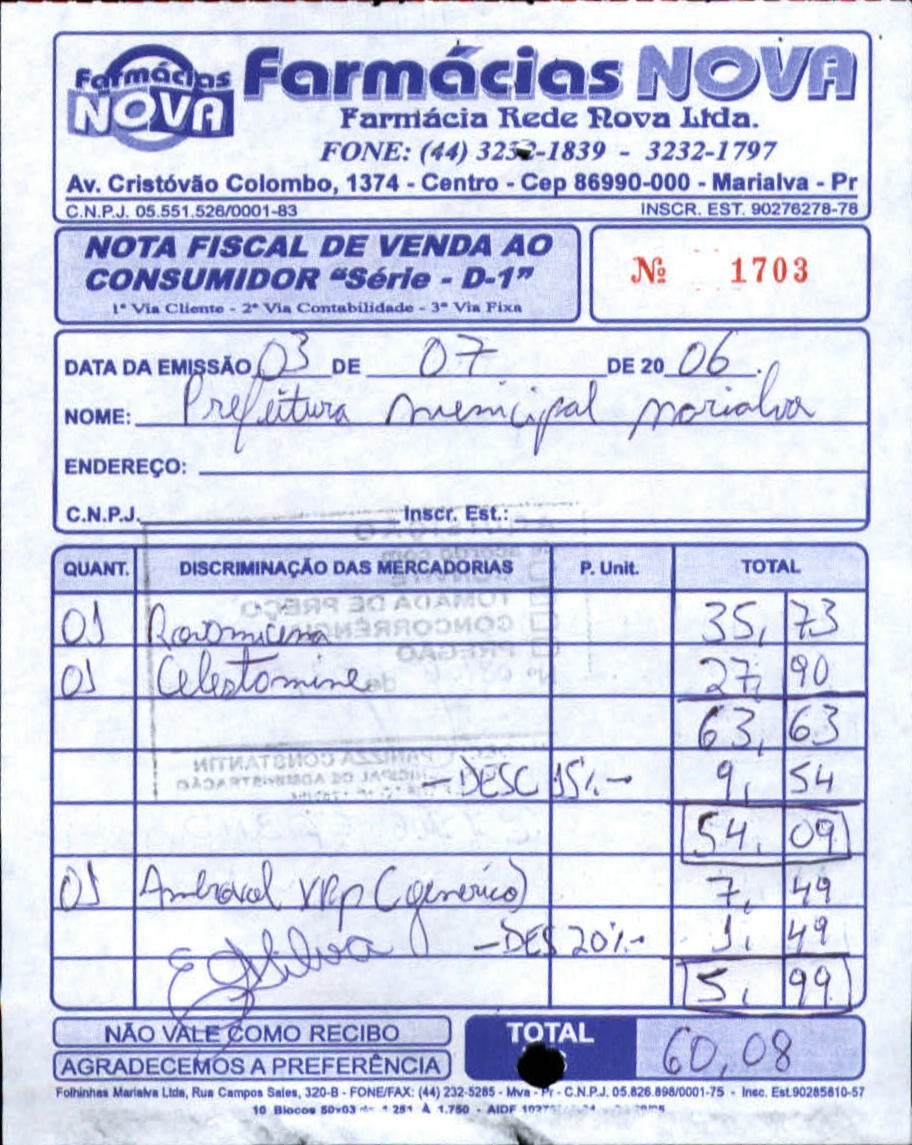 Farmácias NOVA
Farmácias NOVA
Farmácia Rede Nova Ltda.
FONE: (44) 3232-1839 - 3232-1797
Av. Cristóvão Colombo, 1374 - Centro - Cep 86990-000 - Marialva - Pr
C.N.P.J. 05.551.526/0001-83 INSCR. EST. 90276278-78
NOTA FISCAL DE VENDA AO
CONSUMIDOR "Série - D-1"
1ª Via Cliente - 2ª Via Contabilidade - 3ª Via Fixa
Nº 1703
DATA DA EMISSÃO 03 DE 07 DE 20 06.
NOME: Prefeitura municipal marialva
ENDEREÇO:
C.N.P.J. Inscr. Est.:
QUANT. DISCRIMINAÇÃO DAS MERCADORIAS P. Unit. TOTAL
01 35,73
01 Celestamine 27,90
63,63
- DESC 15%- 9,54
54,09
01 Ambroxol (generico) 7,49
EgSilva -DES 20%- 1,49
5,99
NÃO VALE COMO RECIBO
AGRADECEMOS A PREFERÊNCIA
TOTAL 60,08
Folhinhas Marialva Ltda, Rua Campos Sales, 320-B - FONE/FAX: (44) 232-5285 - Mva - Pr - C.N.P.J. 05.826.898/0001-75 - Insc. Est.90285810-57
10 Blocos 50x03 1.251 À 1.750 - AIDF